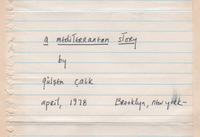 a mediterranean story
by
gülşen çalık
april, 1978 Brooklyn, new york-